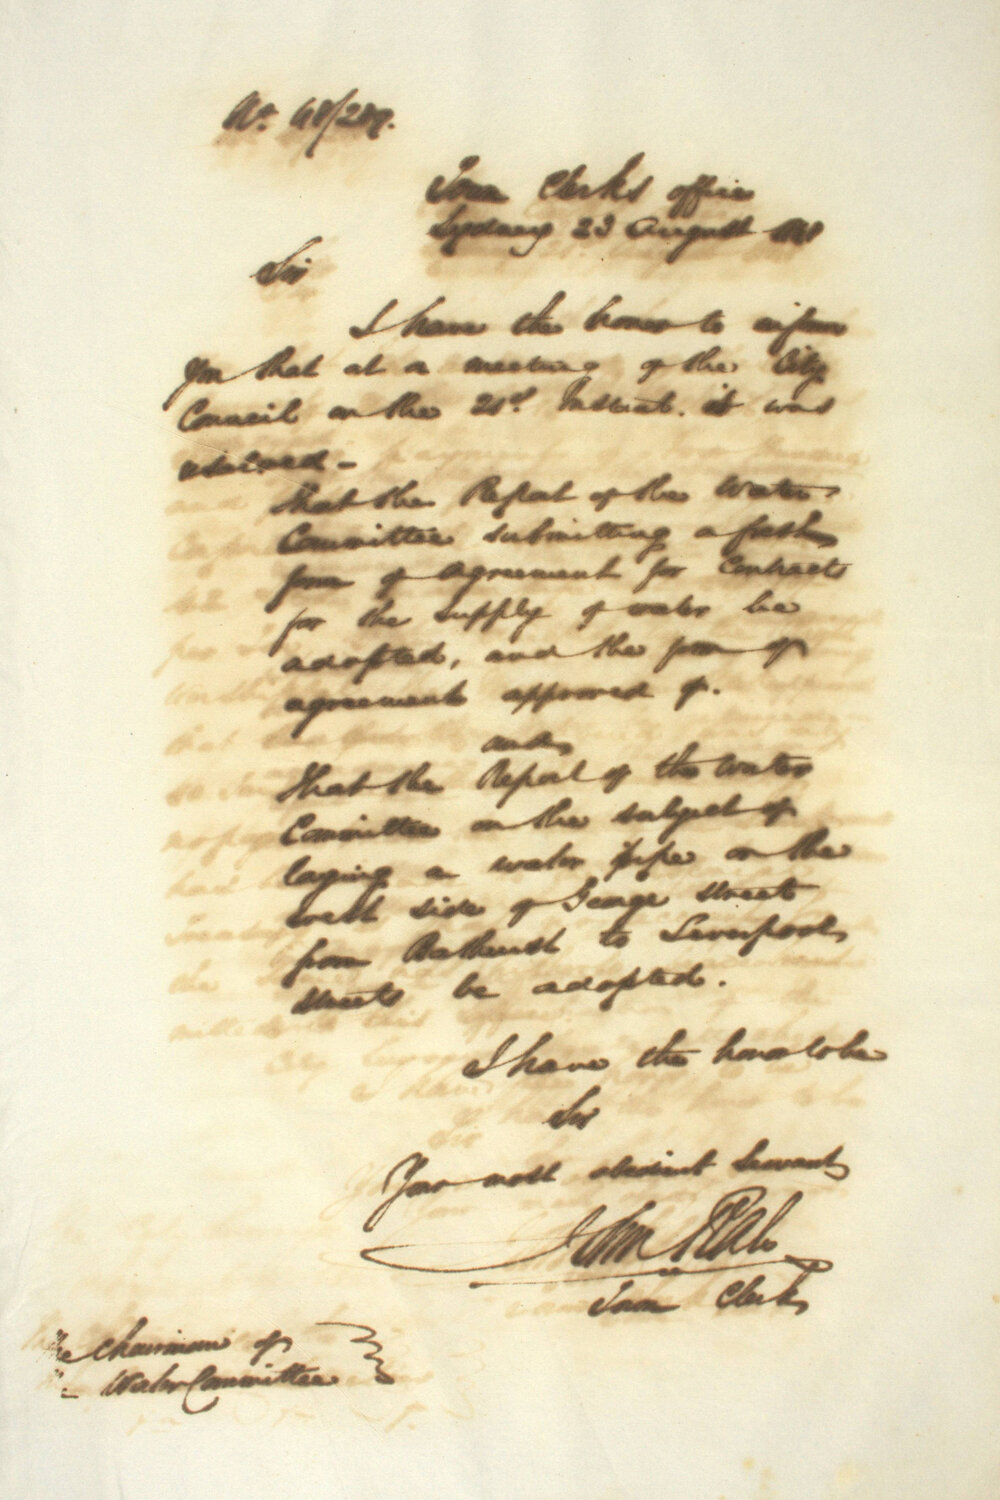 No. 48/289.
Town Clerks office
Sydney 23 August 1848
Sir
I have the honor to inform
you that at a meeting of the City
Council on the 21st Instant. it was
resolved -
That the Report of the Water
Committee submitting a fresh
form of Agreement for Contracts
for the supply of water be
adopted, and the form of
agreement approved of.
and
That the Report of the Water
Committee on the subject of
laying a water pipe on the
west side of George street
from Bathurst to Liverpool
streets be adopted.
I have the honor to be
Sir
Your most obedient Servant
John
Town Clerk
The Chairman of
Water Committee